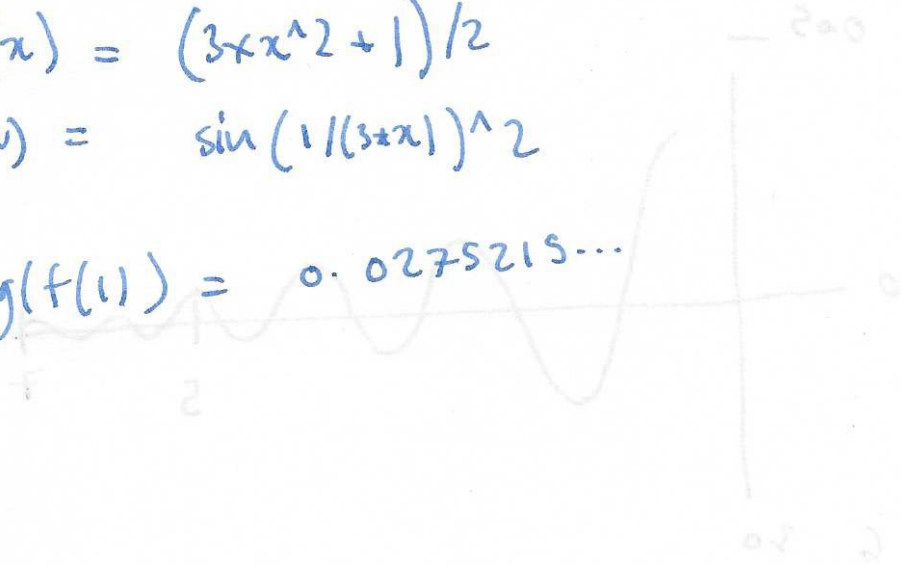 x) = (3*x^2+1)/2
) = sin(1/(3*x))^2
g(f(1)) = 0.0275215...